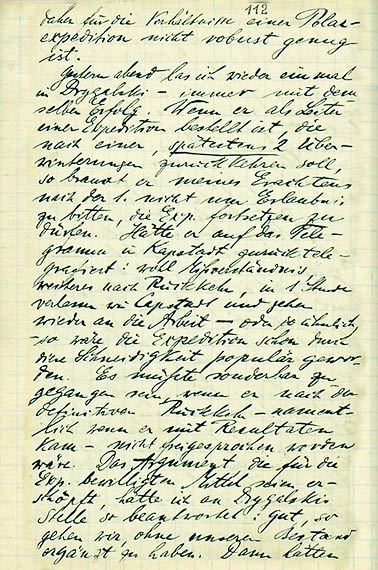 112
daher für die Verhältnisse einer Polar-
expedition nicht robust genug
ist.
Gestern abend las ich wieder einmal
in Drygalski – immer mit dem-
selben Erfolg. Wenn er als Leiter
einer Expedition bestellt ist, die
nach einer, spätestens 2 Über-
winterungen zurückkehren soll,
so braucht er meines Erachtens
nach der 1. nicht um Erlaubnis
zu bitten, die Exp. fortsetzen zu
dürfen. Hätte er auf das Tele-
gramm in Kapstadt zurück tele-
graphiert: voll
weiteres nach Rückkehr, in 1 Stunde
verlassen wir Capstadt und gehen
wieder an die Arbeit – oder so ähnlich,
– so wäre die Expedition schon durch
diese Schneidigkeit populär gewor-
den. Es müsste sonderbar zu
gegangen sein, wenn er nach der
definitiven Rückkehr – nament-
lich wenn er mit Resultaten
kam – nicht freigesprochen worden
wäre. Das Argument, die für die
Exp. bewilligten Mittel seien er-
schöpft, hätte ich an Drygalskis
Stelle so beantwortet: gut, so
gehen wir, ohne unseren
ergänzt zu haben. Dann hätten